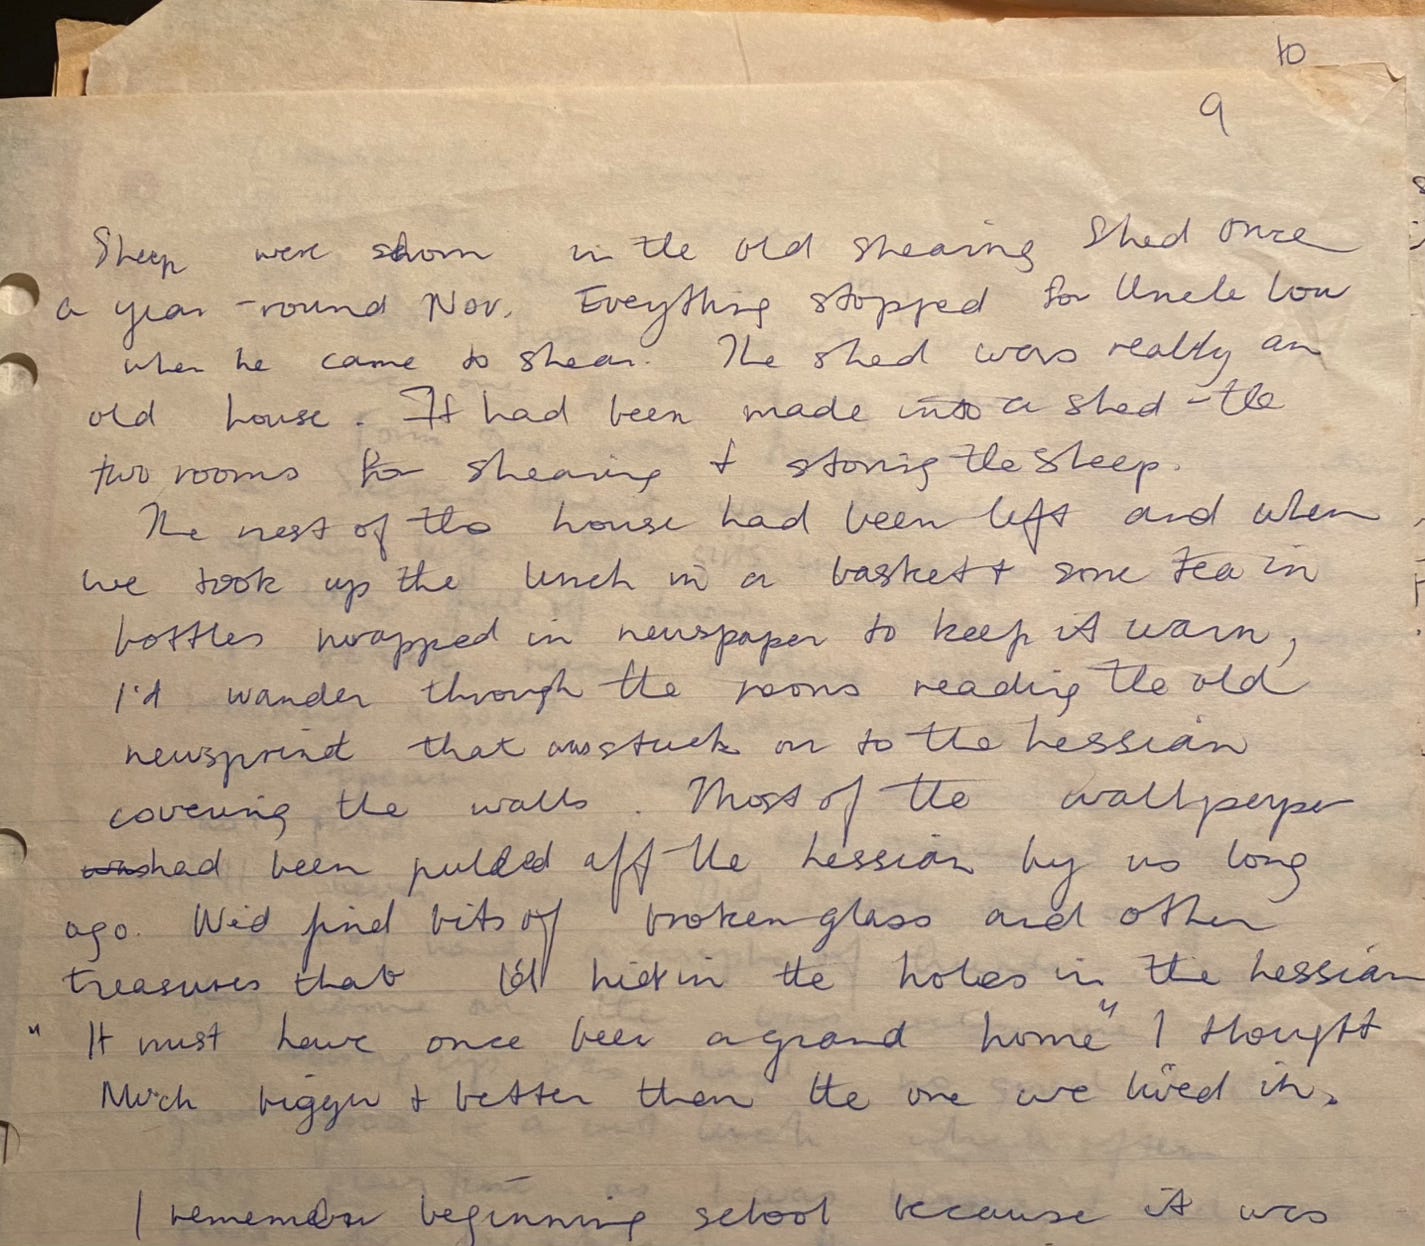 10
9
Sheep were shorn in the old shearing shed once
a year - round Nov. Eveything stopped for Uncle Lou
when he came to shear. The shed was really an
old house. It had been made into a shed - the
two rooms for shearing & storing the sheep.
The rest of the house had been left and when
we took up the lunch in a basket & some tea in
bottles wrapped in newspaper to keep it warm,
I'd wander through the rooms reading the old
newsprint that was stuck on to the hessian
covering the walls. Most of the wallpaper
was had been pulled off the hessian by us long
ago. We'd find bits of broken glass and other
treasures that I'd hide in the holes in the hessian
"It must have once been a grand home" I thought
Much bigger & better than the one we lived in.
I remember beginning school because it was